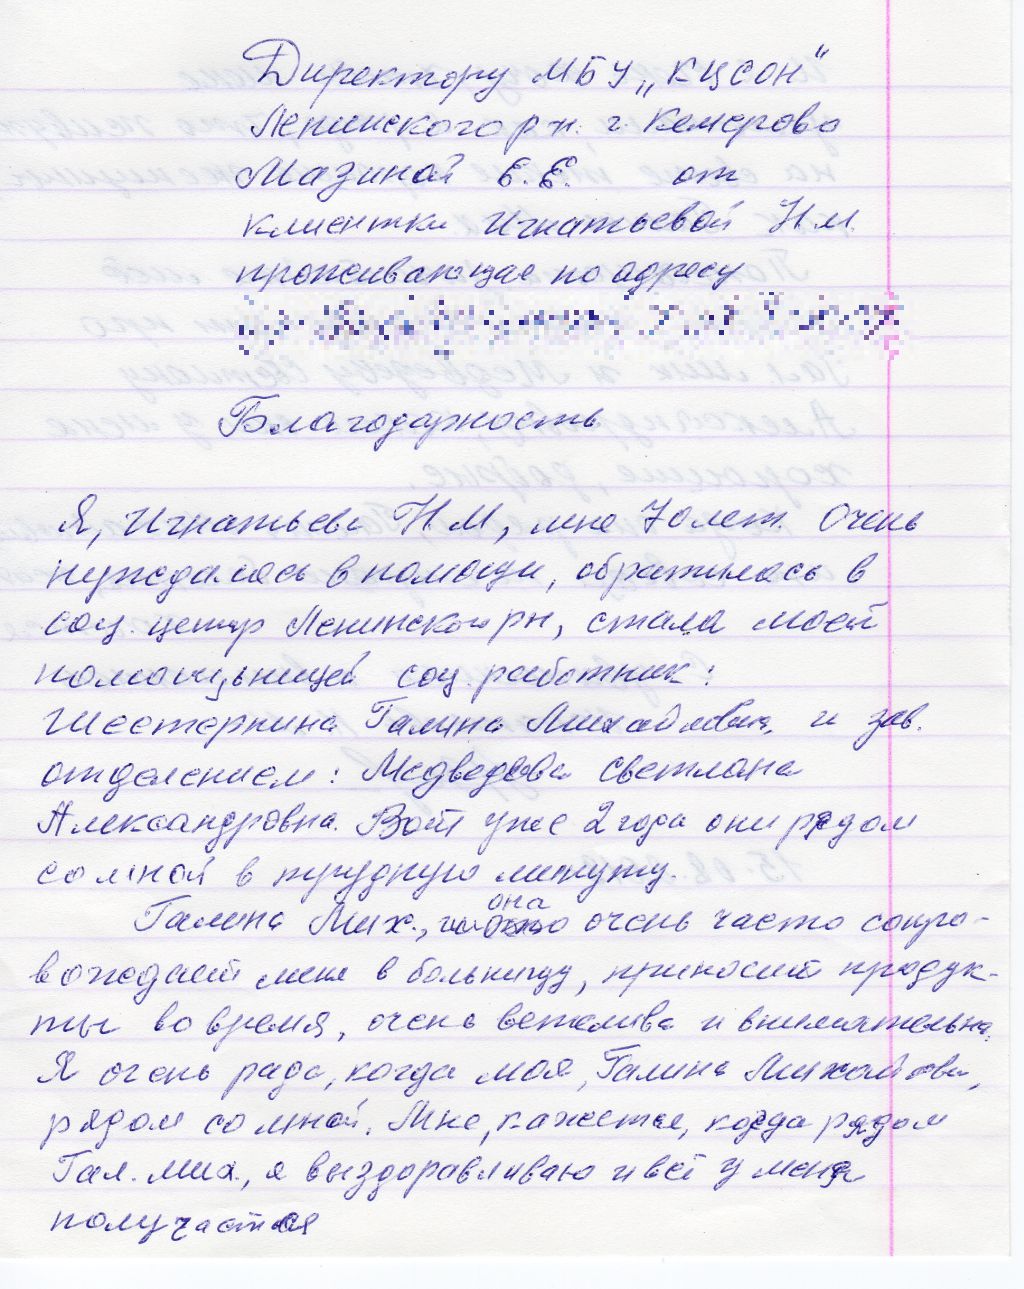 Директору МБУ „КЦСОН"
Ленинского рн. г. Кемерово
Мазиной Е.Е. от
клиентки Игнатьевой Н.М.
проживающая по адресу
Благодарность
Я, Игнатьева Н.М, мне 70 лет. Очень
нуждалась в помощи, обратилась в
соц. центр Ленинского рн, стала моей
помощьницей соц. работник:
Шестернина Галина Михайловна, и зав.
отделением: Медведева Светлана
Александровна. Вот уже 2 года они рядом
со мной в трудную минуту.
Галина Мих., она очень часто сопро-
вождает меня в больницу, приносит продук-
ты во время, очень вежлива и внимательна.
Я очень рада, когда моя, Галина Михайловна,
рядом со мной. Мне, кажется, когда рядом
Гал. Мих., я выздоравливаю и всё у меня
получается